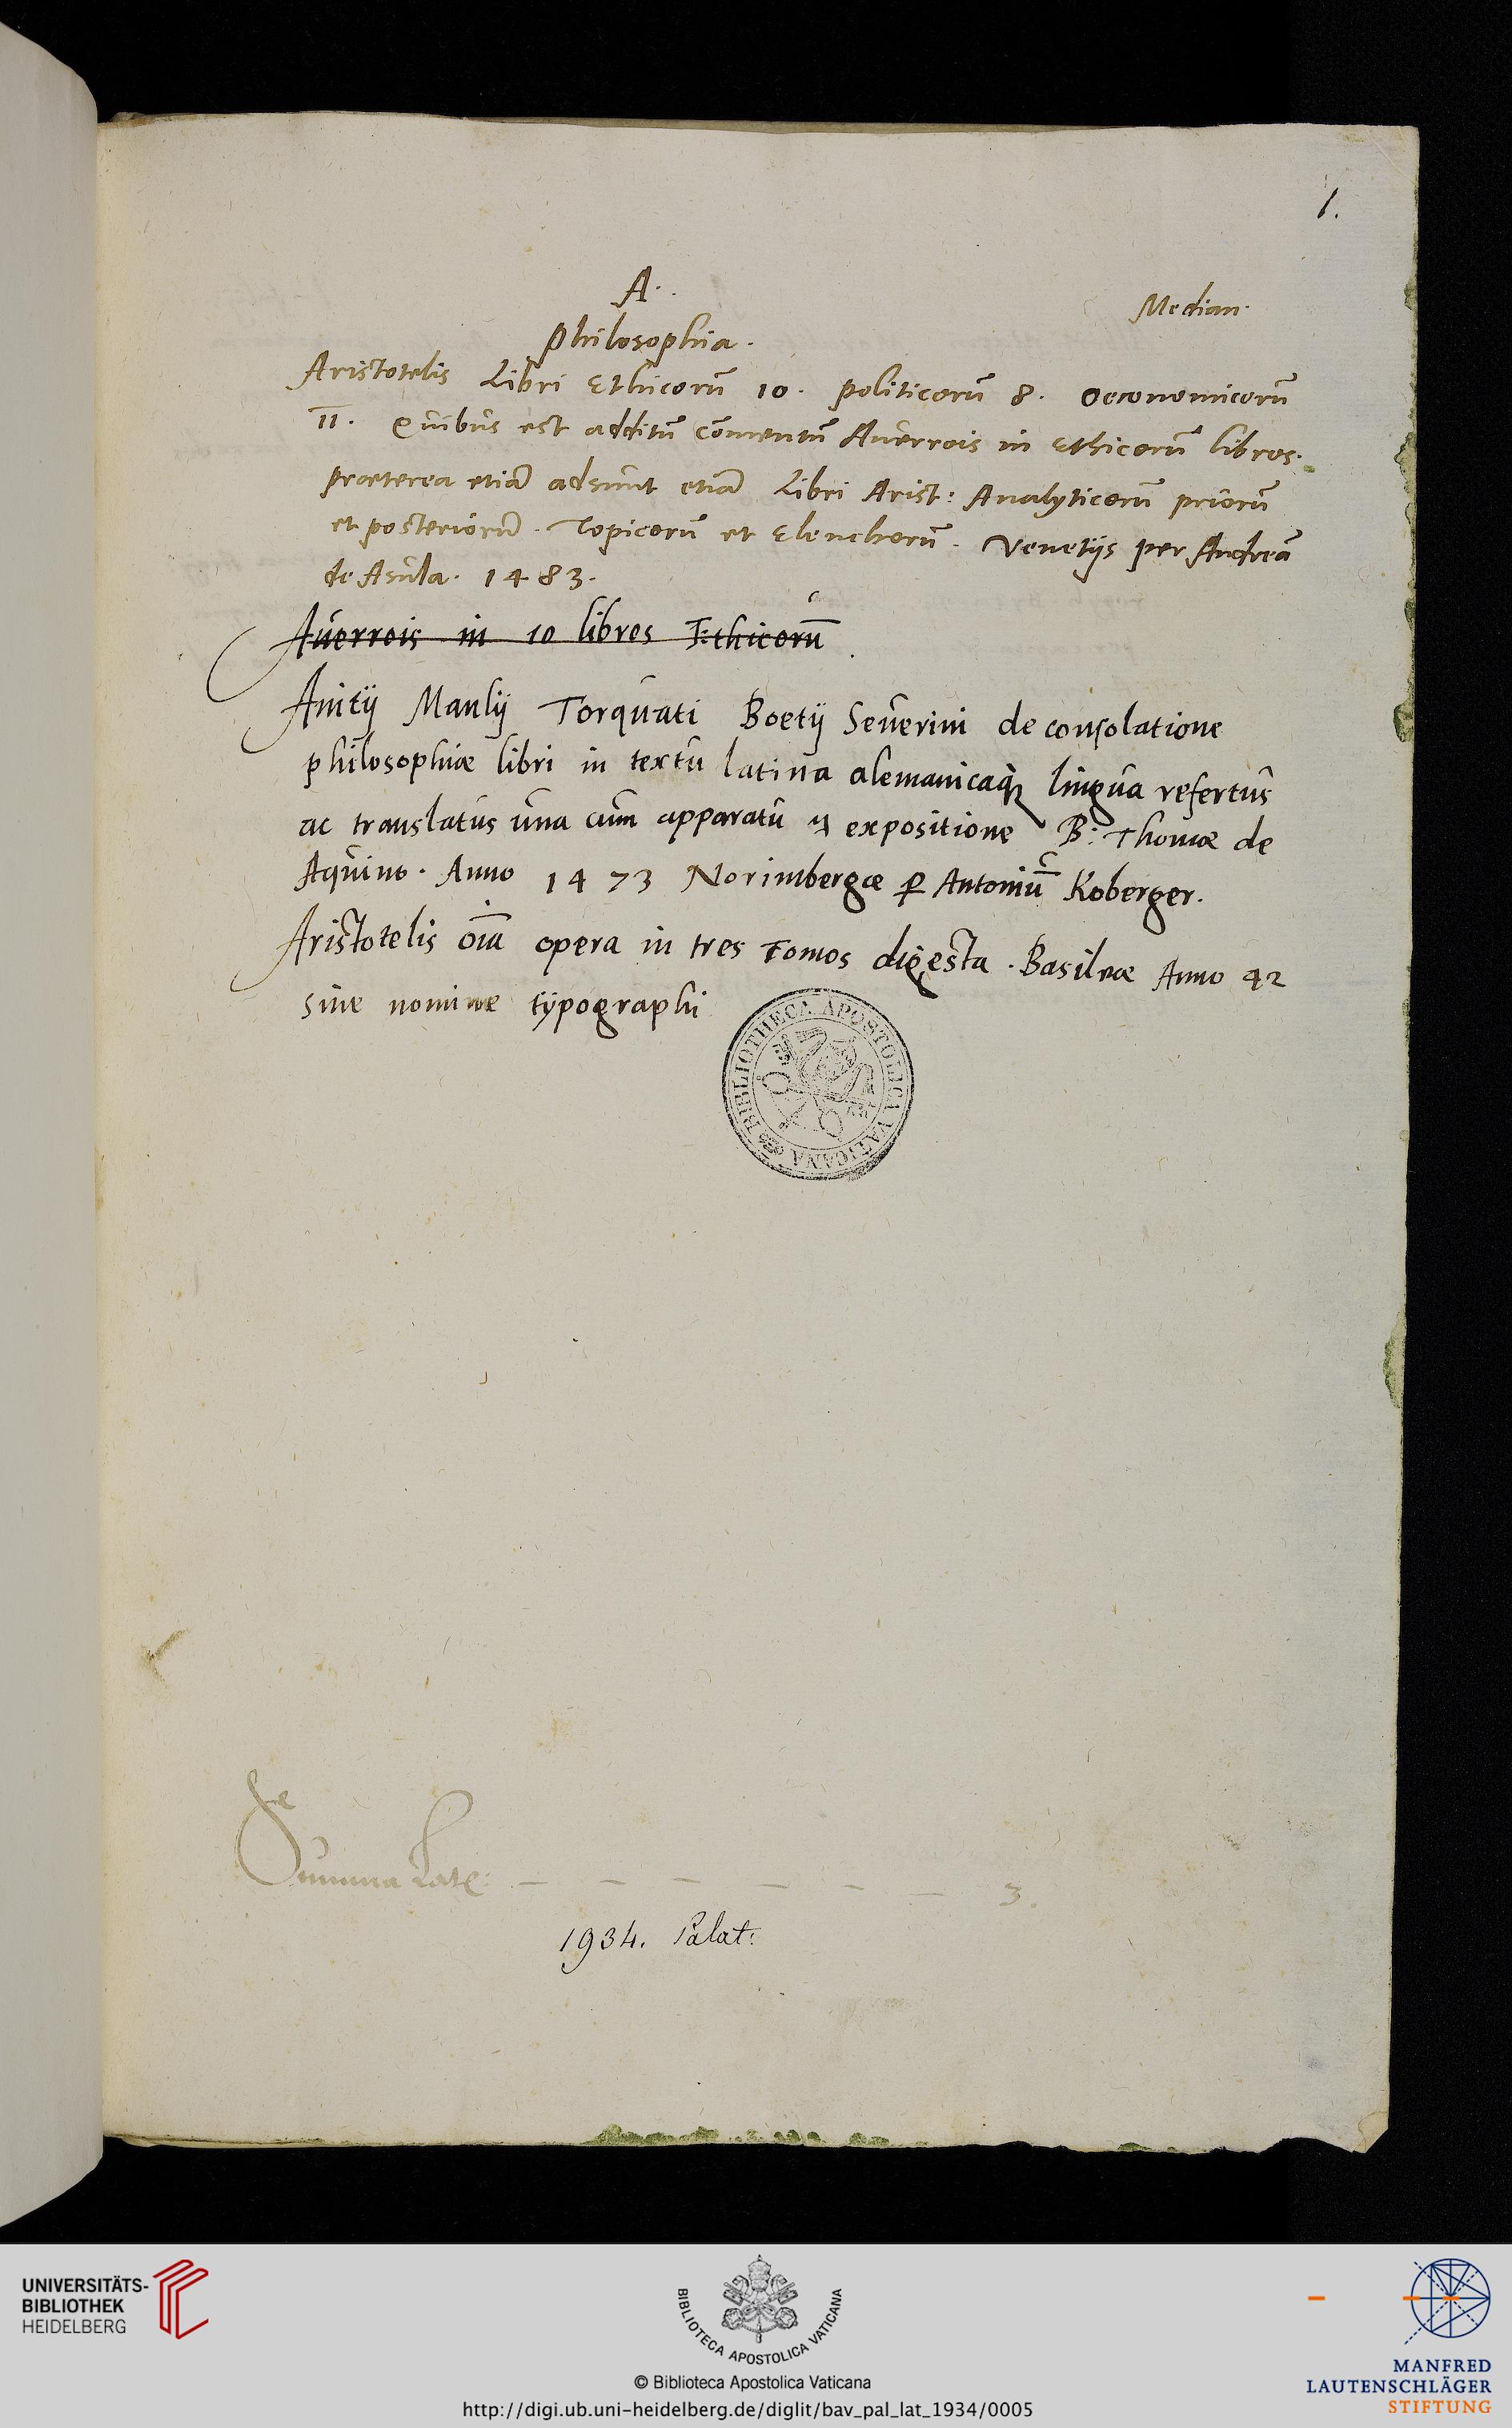 1.
A.
Median.
Philosophia.
Aristotelis Libri Ethicorū 10. Politicorū 8. Oeconomicorū
II. Quibus est additū cōmentū Auerrois in Ethicorū libros.
praeterea etiā adsunt etiā Libri Arist: Analyticorū priorū
et posteriorū. Topicorū et Elenchorū. Venetijs per Andreā
de Asula. 1483.
Auerrois in 10 libros Ethicorū
Anitij Manlij Torquati Boetij Seuerini de consolatione
philosophiae libri in textu latina alemanicaq́ꝫ lingua refertus
ac translatus una cum apparatu ꝯ expositione B: Thomae de
Aquino. Anno 1473 Norimbergae ꝑ Antoniū Koberger.
Aristotelis oīa opera in tres Tomos digesta. Basileae Anno 42
sine nomine typographi
BIBLIOTHECA APOSTOLICA VATICANA
Summa Late – – – – – – 3.
1934. Palat:
UNIVERSITÄTS-
BIBLIOTHEK
HEIDELBERG
BIBLIOTECA APOSTOLICA VATICANA
© Biblioteca Apostolica Vaticana
http://digi.ub.uni-heidelberg.de/diglit/bav_pal_lat_1934/0005
MANFRED
LAUTENSCHLÄGER
STIFTUNG